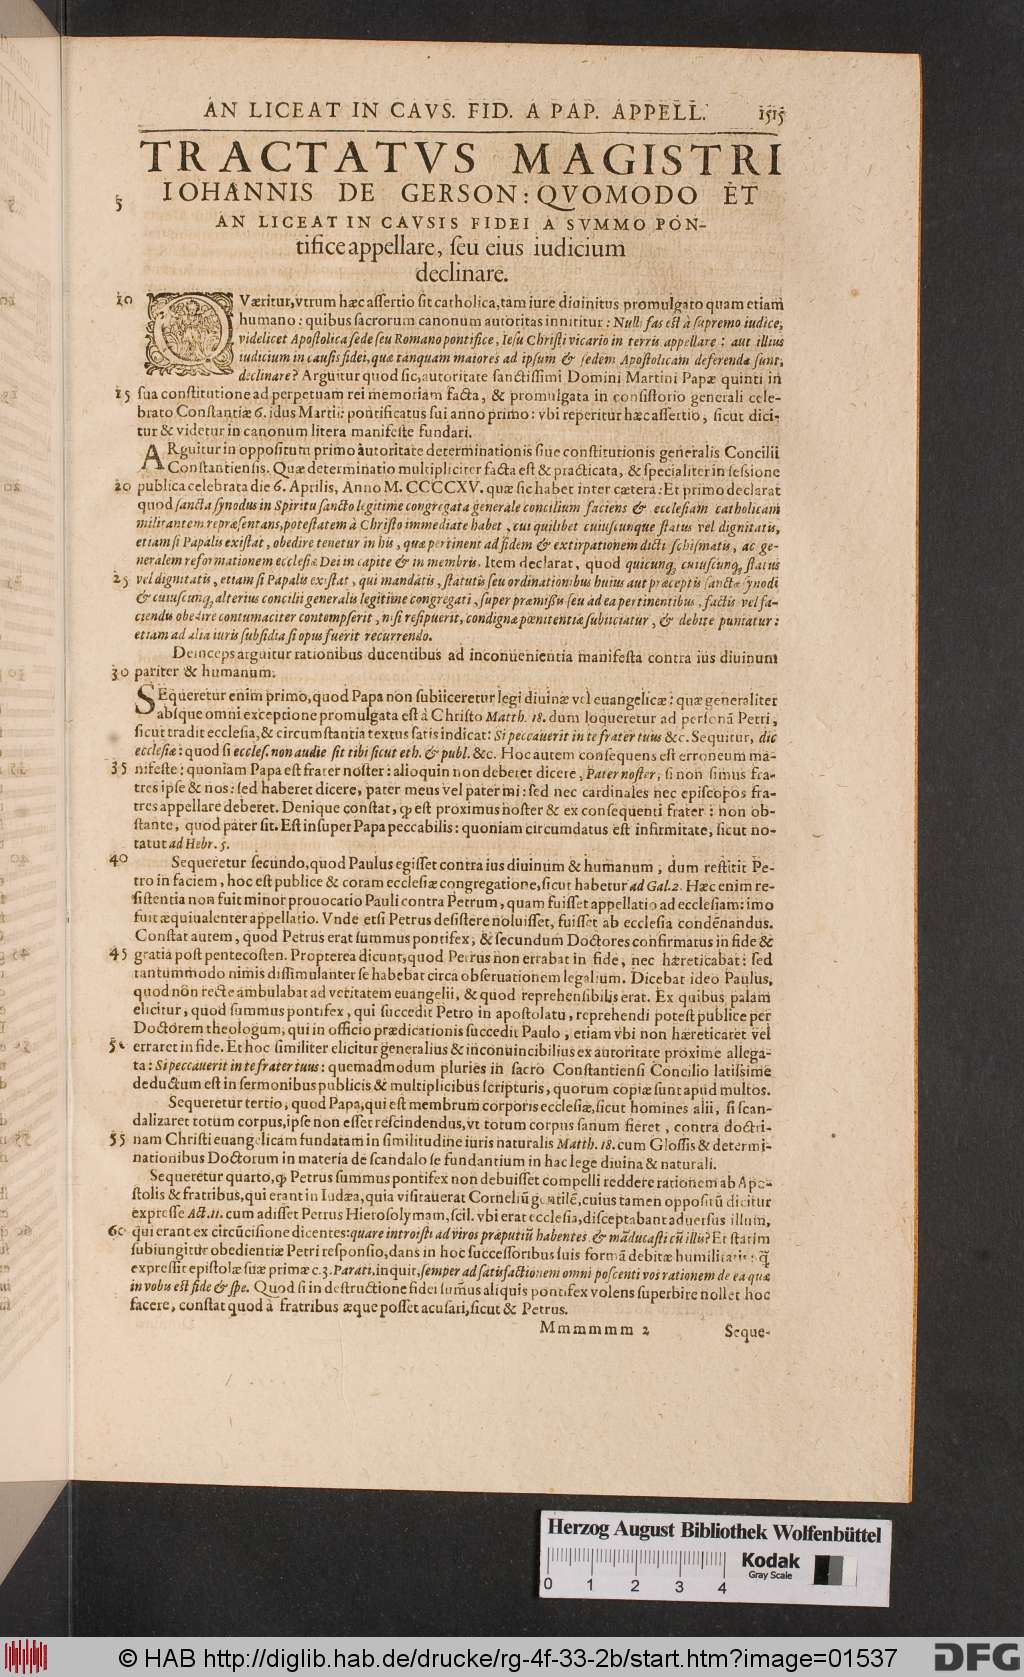 AN LICEAT IN CAVS. FID. A PAP. APPELL. 1515
TRACTATVS MAGISTRI
IOHANNIS DE GERSON: QVOMODO ET
5
AN LICEAT IN CAVSIS FIDEI A SVMMO PON-
tifice appellare, ſeu eius iudicium
declinare.
10 QVæritur, vtrum hæc aſſertio ſit catholica, tam iure diuinitus promulgato quam etiam
humano: quibus ſacrorum canonum autoritas innititur: Nulli fas eſt à ſupremo iudice,
videlicet Apoſtolica ſede ſeu Romano pontifice, Ieſu Chriſti vicario in terris appellare: aut illius
iudicium in cauſis fidei, quæ tanquam maiores ad ipſum & ſedem Apoſtolicam deferendæ ſunt,
declinare? Arguitur quod ſic, autoritate ſanctiſſimi Domini Martini Papæ quinti in
15 ſua conſtitutione ad perpetuam rei memoriam facta, & promulgata in conſiſtorio generali cele-
brato Conſtantiæ 6. idus Martii: pontificatus ſui anno primo: vbi reperitur hæc aſſertio, ſicut dici-
tur & videtur in canonum litera manifeſte fundari.
ARguitur in oppoſitum primo autoritate determinationis ſiue conſtitutionis generalis Concilii
Conſtantienſis. Quæ determinatio multipliciter facta eſt & practicata, & ſpecialiter in ſeſsione
20 publica celebrata die 6. Aprilis, Anno M. CCCCXV. quæ ſic habet inter cætera: Et primo declarat
quod ſancta ſynodus in Spiritu ſancto legitime congregata generale concilium faciens & eccleſiam catholicam
militantem repræſentans, poteſtatem à Chriſto immediate habet, cui quilibet cuiuſcunque ſtatus vel dignitatis,
etiam ſi Papalis exiſtat, obedire tenetur in his, quæ pertinent ad fidem & extirpationem dicti ſchiſmatis, ac ge-
neralem reformationem eccleſiæ Dei in capite & in membris. Item declarat, quod quicunq; cuiuſcunq; ſtatus
25 vel dignitatis, etiam ſi Papalis exiſtat, qui mandatis, ſtatutis ſeu ordinationibus huius aut præceptis ſanctæ ſynodi
& cuiuſcunq; alterius concilii generalis legitime congregati, ſuper præmiſſis ſeu ad ea pertinentibus, factis vel fa-
ciendis obedire contumaciter contempſerit, niſi reſipuerit, condignæ pœnitentiæ ſubiiciatur, & debite puniatur:
etiam ad alia iuris ſubſidia ſi opus fuerit recurrendo.
Deinceps arguitur rationibus ducentibus ad inconuenientia manifeſta contra ius diuinum
30 pariter & humanum.
SEqueretur enim primo, quod Papa non ſubiiceretur legi diuinæ vel euangelicæ: quæ generaliter
abſque omni exceptione promulgata eſt à Chriſto Matth. 18. dum loqueretur ad perſonã Petri,
ſicut tradit eccleſia, & circumſtantia textus ſatis indicat: Si peccauerit in te frater tuus &c. Sequitur, dic
eccleſiæ: quod ſi eccleſ. non audie ſit tibi ſicut eth. & publ. &c. Hoc autem conſequens eſt erroneum ma-
35 nifeſte: quoniam Papa eſt frater noſter: alioquin non deberet dicere, Pater noſter, ſi non ſimus fra-
tres ipſe & nos: ſed haberet dicere, pater meus vel pater mi: ſed nec cardinales nec epiſcopos fra-
tres appellare deberet. Denique conſtat, ꝙ eſt proximus noſter & ex conſequenti frater: non ob-
ſtante, quod pater ſit. Eſt inſuper Papa peccabilis: quoniam circumdatus eſt infirmitate, ſicut no-
tatut ad Hebr. 5.
40 Sequeretur ſecundo, quod Paulus egiſſet contra ius diuinum & humanum, dum reſtitit Pe-
tro in faciem, hoc eſt publice & coram eccleſiæ congregatione, ſicut habetur ad Gal. 2. Hæc enim re-
ſiſtentia non fuit minor prouocatio Pauli contra Petrum, quam fuiſſet appellatio ad eccleſiam: imo
fuit æquiualenter appellatio. Vnde etſi Petrus deſiſtere noluiſſet, fuiſſet ab eccleſia condẽnandus.
Conſtat autem, quod Petrus erat ſummus pontifex, & ſecundum Doctores confirmatus in fide &
45 gratia poſt pentecoſten. Propterea dicunt, quod Petrus non errabat in fide, nec hæreticabat: ſed
tantummodo nimis diſſimulanter ſe habebat circa obſeruationem legalium. Dicebat ideo Paulus,
quod nõn recte ambulabat ad veritatem euangelii, & quod reprehenſibilis erat. Ex quibus palam
elicitur, quod ſummus pontifex, qui ſuccedit Petro in apoſtolatu, reprehendi poteſt publice per
Doctorem theologum, qui in officio prædicationis ſuccedit Paulo, etiam vbi non hæreticaret vel
50 erraret in fide. Et hoc ſimiliter elicitur generalius & inconuincibilius ex autoritate proxime allega-
ta: Si peccauerit in te frater tuus: quemadmodum pluries in ſacro Conſtantienſi Concilio latiſſime
deductum eſt in ſermonibus publicis & multiplicibus ſcripturis, quorum copiæ ſunt apud multos.
Sequeretur tertio, quod Papa, qui eſt membrum corporis eccleſiæ, ſicut homines alii, ſi ſcan-
dalizaret totum corpus, ipſe non eſſet reſcindendus, vt totum corpus ſanum fieret, contra doctri-
55 nam Chriſti euangelicam fundatam in ſimilitudine iuris naturalis Matth. 18. cum Gloſſis & determi-
nationibus Doctorum in materia de ſcandalo ſe fundantium in hac lege diuina & naturali.
Sequeretur quarto, ꝙ Petrus ſummus pontifex non debuiſſet compelli reddere rationem ab Apo-
ſtolis & fratribus, qui erant in Iudæa, quia viſitauerat Corneliũ gentilẽ, cuius tamen oppoſitũ dicitur
expreſſe Act. 11. cum adiſſet Petrus Hieroſolymam, ſcil. vbi erat eccleſia, diſceptabant aduerſus illum,
60 qui erant ex circũciſione dicentes: quare introiſti ad viros præputiũ habentes & mãducaſti cũ illis? Et ſtatim
ſubiungitur obedientiæ Petri reſponſio, dans in hoc ſucceſſoribus ſuis formã debitæ humilitatis: q̃
expreſſit epiſtolæ ſuæ primæ c. 3. Parati, inquit, ſemper ad ſatisfactionem omni poſcenti vos rationem de ea quæ
in vobis eſt fide & ſpe. Quod ſi in deſtructione fidei ſum̃us aliquis pontifex volens ſuperbire nollet hoc
facere, conſtat quod à fratribus æque poſſet acuſari, ſicut & Petrus.
Mmmmmm 2 Seque-
Herzog August Bibliothek Wolfenbüttel
Kodak
Gray Scale
0 1 2 3 4
© HAB http://diglib.hab.de/drucke/rg-4f-33-2b/start.htm?image=01537
DFG